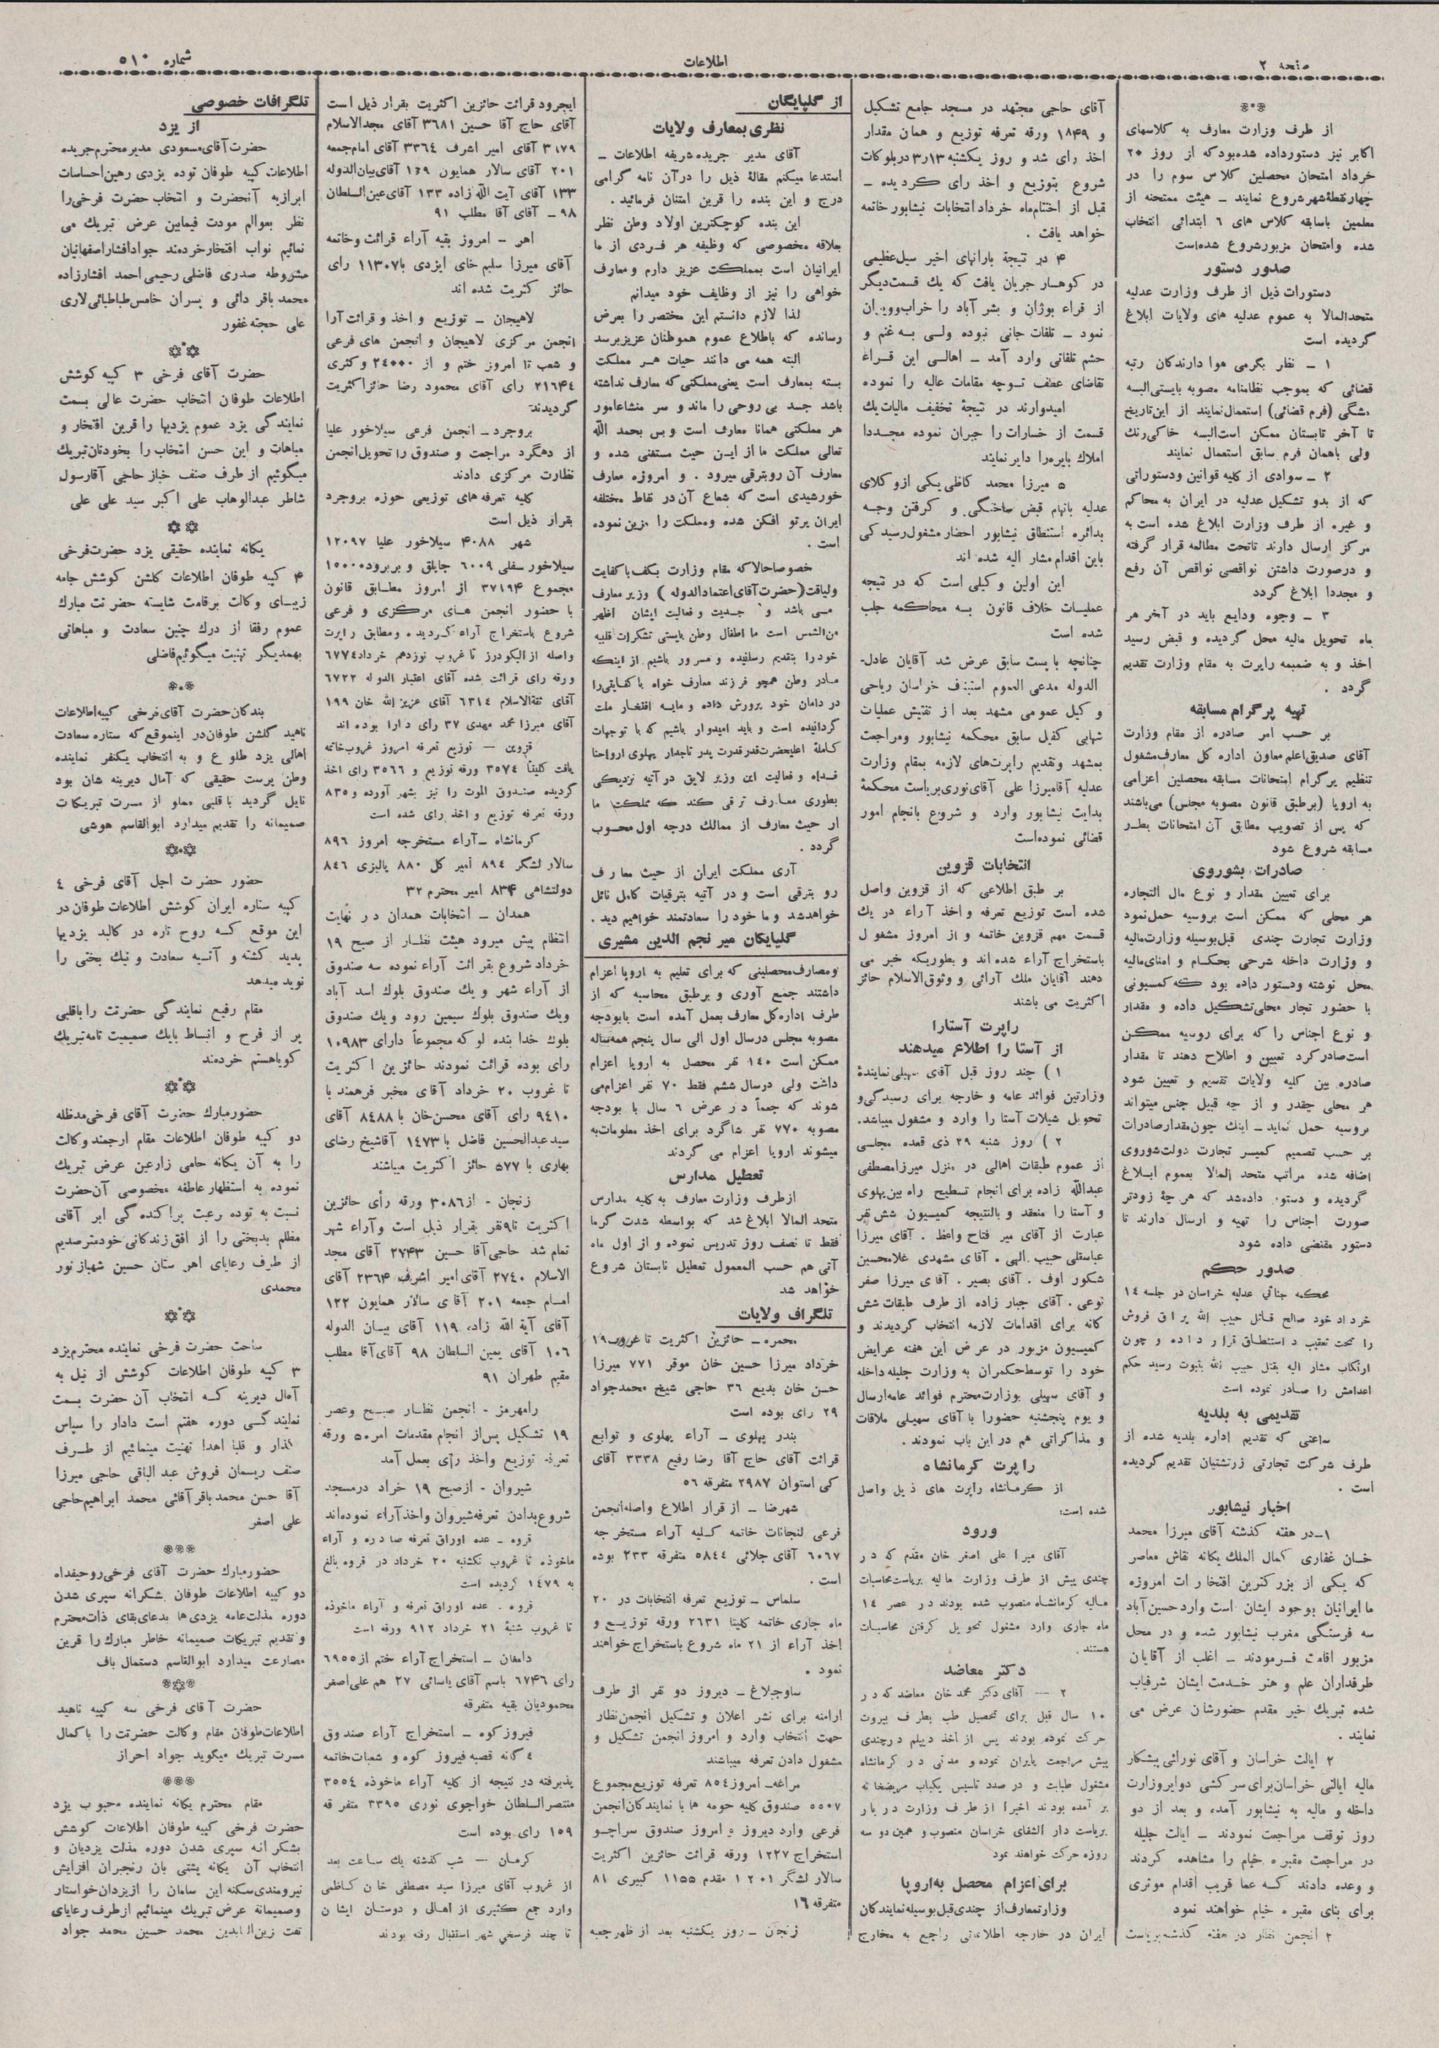 صفحه ۲
اطلاعات
شماره ۵۱۰
از طرف وزارت معارف به کلاسهای
اکابر نیز دستور داده شده بود که از روز ۲۰
خرداد امتحان محصلین کلاس سوم را در
چهار نقطهٔ شهر شروع نمایند ــ هیئت ممتحنه از
معلمین باسابقه کلاس های ۶ ابتدائی انتخاب
شده وامتحان مزبور شروع شده است
صدور دستور
دستورات ذیل از طرف وزارت عدلیه
متحدالمالا به عموم عدلیه های ولایات ابلاغ
گردیده است
۱ ــ نظر بگرمی هوا دارندگان رتبه
قضائی که بموجب نظامنامه مصوبه بایستی البسه
مشگی (فرم قضائی) استعمال نمایند از این تاریخ
تا آخر تابستان ممکن است البسه خاکی رنگ
ولی باهمان فرم سابق استعمال نمایند
۲ ــ سوادی از کلیه قوانین ودستوراتی
که از بدو تشکیل عدلیه در ایران به محاکم
و غیره از طرف وزارت ابلاغ شده است به
مرکز ارسال دارند تاتحت مطالعه قرار گرفته
و درصورت داشتن نواقصی نواقص آن رفع
و مجددا ابلاغ گردد
۳ ــ وجوه ودایع باید در آخر هر
ماه تحویل مالیه محل گردیده و قبض رسید
اخذ و به ضمیمه راپرت به مقام وزارت تقدیم
گردد .
تهیه پرگرام مسابقه
بر حسب امر صادره از مقام وزارت
آقای صدیق اعلم معاون اداره کل معارف مشغول
تنظیم پرگرام امتحانات مسابقه محصلین اعزامی
به اروپا (برطبق قانون مصوبه مجلس) می باشند
که پس از تصویب مطابق آن امتحانات بطور
مسابقه شروع شود
صادرات بشوروی
برای تعیین مقدار و نوع مال التجاره
هر محلی که ممکن است بروسیه حمل نمود
وزارت تجارت چندی قبل بوسیله وزارت مالیه
و وزارت داخله شرحی بحکام و امنای مالیه
محل نوشته ودستور داده بود که کمسیونی
با حضور تجار محلی تشکیل داده و مقدار
و نوع اجناس را که برای روسیه ممکن
است صادر کرد تعیین و اطلاع دهند تا مقدار
صادره بین کلیه ولایات تقسیم و تعیین شود
هر محلی چقدر و از چه قبیل جنس میتواند
بروسیه حمل نماید ــ اینك چون مقدار صادرات
بر حسب تصمیم کمیسر تجارت دولت شوروی
اضافه شده مراتب متحد المالا بعموم ابلاغ
گردیده و دستور داده شد که هر چه زودتر
صورت اجناس را تهیه و ارسال دارند تا
دستور مقتضی داده شود
صدور حکم
محکمه جنائی عدلیه خراسان در جلسه ۱۴
خرداد خود صالح قاتل حبیب الله یراق فروش
را تحت تعقیب و استنطاق قرار داده و چون
ارتکاب مشار الیه بقتل حبیب الله بثبوت رسید حکم
اعدامش را صادر نموده است
تقدیمی به بلدیه
ساعتی که تقدیم اداره بلدیه شده از
طرف شرکت تجارتی زرتشتیان تقدیم گردیده
است .
اخبار نیشابور
۱ــ در هفته گذشته آقای میرزا محمد
خان غفاری کمال الملك یگانه نقاش معاصر
که یکی از بزرگترین افتخارات امروزه
ما ایرانیان بوجود ایشان است وارد حسین آباد
سه فرسنگی مغرب نیشابور شده و در محل
مزبور اقامت فرمودند ــ اغلب از آقایان
طرفداران علم و هنر خدمت ایشان شرفیاب
شده تبریك خیر مقدم حضورشان عرض می
نمایند .
۲ ایالت خراسان و آقای نورائی پیشکار
مالیه ایالتی خراسان برای سرکشی دوایر وزارت
داخله و مالیه به نیشابور آمده و بعد از دو
روز توقف مراجعت نمودند ــ ایالت جلیله
در مراجعت مقبره خیام را مشاهده کردند
و وعده دادند که عما قریب اقدام موثری
برای بنای مقبره خیام خواهند نمود
۳ انجمن نظار در هفته گذشته بریاست
آقای حاجی مجتهد در مسجد جامع تشکیل
و ۱۸۴۹ ورقه تعرفه توزیع و همان مقدار
اخذ رای شد و روز یکشنبه ۳ر۱۳ در بلوکات
شروع بتوزیع و اخذ رای گردیده ــ
قبل از اختتام ماه خرداد انتخابات نیشابور خاتمه
خواهد یافت .
۴ در نتیجهٔ بارانهای اخیر سیل عظیمی
در کوهسار جریان یافت که یك قسمت دیگر
از قراء بوژان و بشر آباد را خراب وویران
نمود ــ تلفات جانی نبوده ولی به غنم و
حشم تلفاتی وارد آمد ــ اهالی این قراء
تقاضای عطف توجه مقامات عالیه را نموده
امیدوارند در نتیجهٔ تخفیف مالیات یك
قسمت از خسارات را جبران نموده مجددا
املاك بایره را دایر نمایند
۵ میرزا محمد کاظمی یکی ازوکلای
عدلیه باتهام قبض ساختگی و گرفتن وجه
بدائره استنطاق نیشابور احضار مشغول رسیدگی
باین اقدام مشار الیه شده اند
این اولین وکیلی است که در نتیجه
عملیات خلاف قانون به محاکمه جلب
شده است
چنانچه با پست سابق عرض شد آقایان عادل-
الدوله مدعی العموم استیناف خراسان ریاحی
و کیل عمومی مشهد بعد از تفتیش عملیات
شهابی کفیل سابق محکمه نیشابور ومراجعت
بمشهد وتقدیم راپرت های لازمه بمقام وزارت
عدلیه آقامیرزا علی آقای نوری بریاست محکمهٔ
بدایت نیشابور وارد و شروع بانجام امور
قضائی نموده است
انتخابات قزوین
بر طبق اطلاعی که از قزوین واصل
شده است توزیع تعرفه واخذ آراء در یك
قسمت مهم قزوین خاتمه و از امروز مشغول
باستخراج آراء شده اند و بطوریکه خبر می
دهند آقایان ملك آرائی و وثوق الاسلام حائز
اکثریت می باشند
راپرت آستارا
از آستارا اطلاع میدهند
۱ ) چند روز قبل آقای سهیلی نمایندهٔ
وزارتین فوائد عامه و خارجه برای رسیدگی و
تحویل شیلات آستارا وارد و مشغول میباشد.
۲ ) روز شنبه ۲۹ ذی قعده مجلسی
از عموم طبقات اهالی در منزل میرزا مصطفی
عبدالله زاده برای انجام تسطیح راه بین پهلوی
و آستارا منعقد و بالنتیجه کمیسیون شش نفر
عبارت از آقای میر فتاح واعظ . آقای میرزا
عباسقلی حبیب الهی . آقای مشهدی غلامحسین
شکور اوف . آقای بصیر . آقای میرزا صفر
نوعی . آقای جبار زاده از طرف طبقات شش
گانه برای اقدامات لازمه انتخاب گردیدند و
کمیسیون مزبور در عرض این هفته عرایض
خود را توسط حکمران به وزارت جلیله داخله
و آقای سهیلی بوزارت محترم فوائد عامه ارسال
و یوم پنجشنبه حضورا با آقای سهیلی ملاقات
و مذاکراتی هم در این باب نمودند .
راپرت کرمانشاه
از کرمانشاه راپرت های ذیل واصل
شده است:
ورود
آقای میرزا علی اصغر خان مقدم که در
چندی پیش از طرف وزارت مالیه بریاست محاسبات
مالیه کرمانشاه منصوب شده بودند در عصر ۱۴
ماه جاری وارد مشغول تحویل گرفتن محاسبات
هستند
دکتر معاضد
۲ ــ آقای دکتر محمد خان معاضد که در
۱۰ سال قبل برای تحصیل طب بطرف بیروت
حرکت نموده بودند پس از اخذ دیپلم در چندی
پیش مراجعت بایران نموده و مدتی در کرمانشاه
مشغول طبابت و در صدد تاسیس یکباب مریضخانه
بر آمده بودند اخیرا از طرف وزارت دربار
بریاست دار الشفای خراسان منصوب و همین دو سه
روزه حرکت خواهند نمود
برای اعزام محصل به اروپا
وزارت معارف از چندی قبل بوسیله نمایندگان
ایران در خارجه اطلاعاتی راجع به مخارج
از گلپایگان
نظری بمعارف ولایات
آقای مدیر جریده شریفه اطلاعات ــ
استدعا میکنم مقالهٔ ذیل را درآن نامه گرامی
درج و این بنده را قرین امتنان فرمائید .
این بنده کوچکترین اولاد وطن نظر
بعلاقه مخصوصی که وظیفه هر فردی از ما
ایرانیان است بمملکت عزیز دارم و معارف
خواهی را نیز از وظایف خود میدانم
لذا لازم دانستم این مختصر را بعرض
رسانده که باطلاع عموم هموطنان عزیز برسد
البته همه می دانند حیات هر مملکت
بسته بمعارف است یعنی مملکتی که معارف نداشته
باشد جسد بی روحی را ماند و سر منشاء امور
هر مملکتی همانا معارف است و بس بحمد الله
تعالی مملکت ما از این حیث مستغنی شده و
معارف آن روبترقی میرود . و امروزه معارف
خورشیدی است که شعاع آن در نقاط مختلفه
ایران پرتو افکن شده ومملکت را مزین نموده
است .
خصوصا حالا که مقام وزارت بکف باکفایت
ولیاقت (حضرت آقای اعتمادالدوله ) وزیر معارف
می باشد و جدیت و فعالیت ایشان اظهر
من الشمس است ما اطفال وطن بایستی تشکرات قلبیه
خود را بتقدیم رسانیده و مسرور باشیم از اینکه
مادر وطن همچو فرزند معارف خواه باکفایتی را
در دامان خود پرورش داده و مایه افتخار ملت
گردانیده است و باید امیدوار باشیم که با توجهات
کامله اعلیحضرت قدر قدرت پدر تاجدار پهلوی ارواحنا
فداه و فعالیت این وزیر لایق در آتیه نزدیکی
بطوری معارف ترقی کند که مملکت ما
از حیث معارف از ممالك درجه اول محسوب
گردد .
آری مملکت ایران از حیث معارف
رو بترقی است و در آتیه بترقیات کامل نائل
خواهد شد و ما خود را سعادتمند خواهیم دید .
گلپایگان میر نجم الدین مشیری
ومصارف محصلینی که برای تعلیم به اروپا اعزام
داشتند جمع آوری و برطبق محاسبه که از
طرف اداره کل معارف بعمل آمده است بابودجه
مصوبه مجلس در سال اول الی سال پنجم همه ساله
ممکن است ۱۴۰ نفر محصل به اروپا اعزام
داشت ولی در سال ششم فقط ۷۰ نفر اعزام می
شوند که جمعاً در عرض ۶ سال با بودجه
مصوبه ۷۷۰ نفر شاگرد برای اخذ معلومات به
میشوند اروپا اعزام می گردند
تعطیل مدارس
از طرف وزارت معارف به کلیه مدارس
متحد المالا ابلاغ شد که بواسطه شدت گرما
فقط تا نصف روز تدریس نموده و از اول ماه
آتی هم حسب المعمول تعطیل تابستان شروع
خواهد شد
تلگراف ولایات
محمره ــ حائزین اکثریت تا غروب ۱۹
خرداد میرزا حسین خان موقر ۷۷۱ میرزا
حسن خان بدیع ۳۶ حاجی شیخ محمدجواد
۲۹ رای بوده است
بندر پهلوی ــ آراء پهلوی و توابع
قرائت آقای حاج آقا رضا رفیع ۳۳۳۸ آقای
کی استوان ۲۹۸۷ متفرقه ۵۶
شهرضا ــ از قرار اطلاع واصله انجمن
فرعی لنجانات خاتمه کلیه آراء مستخرجه
۶۰۶۷ آقای جلائی ۵۸۴۴ متفرقه ۲۳۳ بوده
است .
سلماس ــ توزیع تعرفه انتخابات در ۲۰
ماه جاری خاتمه کلیتا ۲۶۳۱ ورقه توزیع و
اخذ آراء از ۲۱ ماه شروع باستخراج خواهند
نمود .
ساوجبلاغ ــ دیروز دو نفر از طرف
ارامنه برای نشر اعلان و تشکیل انجمن نظار
جهت انتخاب وارد و امروز انجمن تشکیل و
مشغول دادن تعرفه میباشند
مراغه ــ امروز ۸۵۴ تعرفه توزیع مجموع
۵۵۰۷ صندوق کلیه حومه ها با نمایندگان انجمن
فرعی وارد دیروز و امروز صندوق سراجو
استخراج ۱۲۲۷ ورقه قرائت حائزین اکثریت
سالار لشگر ۱۲۰۱ مقدم ۱۱۵۵ کبیری ۸۱
متفرقه ۱۶
زنجان ــ روز یکشنبه بعد از ظهر جعبه
ایجرود قرائت حائزین اکثریت بقرار ذیل است
آقای حاج آقا حسین ۳۶۸۱ آقای مجدالاسلام
۳۱۷۹ آقای امیر اشرف ۳۳۶۴ آقای امام جمعه
۲۰۱ آقای سالار همایون ۱۳۹ آقای بیان الدوله
۱۳۳ آقای آیت الله زاده ۱۳۳ آقای عین السلطان
۹۸ ــ آقای آقا مطلب ۹۱
اهر ــ امروز بقیه آراء قرائت وخاتمه
آقای میرزا سلیم خای ایزدی با ۱۱۳۰۷ رای
حائز کثریت شده اند
لاهیجان ــ توزیع و اخذ و قرائت آرا
انجمن مرکزی لاهیجان و انجمن های فرعی
و شعب تا امروز ختم و از ۲۴۰۰۰ وکثری
۲۱۶۴۴ رای آقای محمود رضا حائز اکثریت
گردیدند
بروجرد ــ انجمن فرعی سیلاخور علیا
از دهگرد مراجعت و صندوق را تحویل انجمن
نظارت مرکزی دادند
کلیه تعرفه های توزیعی حوزه بروجرد
بقرار ذیل است
شهر ۴۰۸۸ سیلاخور علیا ۱۲۰۹۷
سیلاخور سفلی ۶۰۰۹ جاپلق و بربرود ۱۵۰۰۰
مجموع ۳۷۱۹۴ از امروز مطابق قانون
با حضور انجمن های مرکزی و فرعی
شروع باستخراج آراء گردیده ومطابق راپرت
واصله از الیگودرز تا غروب نوزدهم خرداد ۶۷۷۴
ورقه رای قرائت شده آقای اعتبار الدوله ۶۷۲۲
آقای ثقة الاسلام ۶۳۱۴ آقای عزیز الله خان ۱۹۹
آقای میرزا محمد مهدی ۳۷ رای دارا بوده اند
قزوین ــ توزیع تعرفه امروز غروب خاتمه
یافت کلیتاً ۳۵۷۴ ورقه توزیع و ۳۵۶۶ رای اخذ
گردیده صندوق الموت را نیز بشهر آورده و ۸۳۵
ورقه تعرفه توزیع و اخذ رای شده است
کرمانشاه ــ آراء مستخرجه امروز ۸۹۶
سالار لشگر ۸۹۴ امیر کل ۸۸۰ پالیزی ۸۴۶
دولتشاهی ۸۳۴ امیر محترم ۳۲
همدان ــ انتخابات همدان در نهایت
انتظام پیش میرود هیئت نظار از صبح ۱۹
خرداد شروع بقرائت آراء نموده سه صندوق
از آراء شهر و یك صندوق بلوك اسد آباد
ویك صندوق بلوك سیمین رود ویك صندوق
بلوك خدا بنده لو که مجموعاً دارای ۱۰۹۸۳
رای بوده قرائت نمودند حائزین اکثریت
تا غروب ۲۰ خرداد آقای مخبر فرهمند با
۹۴۱۰ رای آقای محسن خان با ۸۴۸۸ آقای
سید عبدالحسین فاضل با ۱۴۷۳ آقاشیخ رضای
بهاری با ۵۷۷ حائز اکثریت میباشند
زنجان - از ۳۰۸۶ ورقه رأی حائزین
اکثریت تا ۹ نفر بقرار ذیل است وآراء شهر
تمام شد حاجی آقا حسین ۲۷۴۳ آقای مجد
الاسلام ۲۷۴۰ آقای امیر اشرف ۲۳۶۴ آقای
امام جمعه ۲۰۱ آقای سالار همایون ۱۲۲
آقای آیة الله زاده ۱۱۹ آقای بیان الدوله
۱۰۶ آقای یمین السلطان ۹۸ آقای آقا مطلب
مقیم طهران ۹۱
رامهرمز - انجمن نظار صبح وعصر
۱۹ تشکیل پس از انجام مقدمات امر ۵۰ ورقه
تعرفه توزیع واخذ رأی بعمل آمد
شیروان - از صبح ۱۹ خرداد در مسجد
شروع بدادن تعرفه شیروان واخذ آراء نموده اند
قروه ــ عده اوراق تعرفه صادره و آراء
ماخوذه تا غروب یکشنبه ۲۰ خرداد در قروه بالغ
به ۱۴۷۹ گردیده است
قروه . عده اوراق تعرفه و آراء ماخوذه
تا غروب شنبهٔ ۲۱ خرداد ۹۱۲ ورقه است
دامغان ــ استخراج آراء ختم از ۶۹۵۵
رای ۶۷۴۶ باسم آقای یاسائی ۲۷ هم علی اصغر
محمودیان بقیه متفرقه
فیروز کوه ــ استخراج آراء صندوق
۴ گانه قصبه فیروز کوه و شعبات خاتمه
پذیرفته در نتیجه از کلیه آراء ماخوذه ۳۵۵۴
منتصر السلطان خواجوی نوری ۳۳۹۵ متفرقه
۱۵۹ رای بوده است
کرمان ــ شب گذشته یك ساعت بعد
از غروب آقای میرزا سید مصطفی خان کاظمی
وارد جمع کثیری از اهالی و دوستان ایشان
تا چند فرسخی شهر استقبال رفته بودند
تلگرافات خصوصی
از یزد
حضرت آقای مسعودی مدیر محترم جریده
اطلاعات کپیه طوفان توده یزدی رهین احساسات
ابرازیه آنحضرت و انتخاب حضرت فرخی را
نظر بعوالم مودت فیمابین عرض تبریك می
نمائیم نواب افتخار خردمند جواد افشار اصفهانیان
مشروطه صدری فاضلی رحیمی احمد افشارزاده
محمد باقر دائی و پسران خامس طباطبائی لاری
علی حجته غفور
حضرت آقای فرخی ۳ کپیه کوشش
اطلاعات طوفان انتخاب حضرت عالی بسمت
نمایندگی یزد عموم یزدیها را قرین افتخار و
مباهات و این حسن انتخاب را بخودتان تبریك
میگوئیم از طرف صنف خباز حاجی آقارسول
شاطر عبدالوهاب علی اکبر سید علی علی
یگانه نماینده حقیقی یزد حضرت فرخی
۴ کپیه طوفان اطلاعات گلشن کوشش جامه
زیبای وکالت برقامت شایسته حضرتت مبارك
عموم رفقا از درك چنین سعادت و مباهاتی
بهمدیگر تهنیت میگوئیم فاضلی
بندگان حضرت آقای فرخی کپیه اطلاعات
ناهید گلشن طوفان در اینموقع که ستاره سعادت
اهالی یزد طلوع و به انتخاب یکنفر نماینده
وطن پرست حقیقی که آمال دیرینه شان بود
نایل گردید با قلبی مملو از مسرت تبریکات
صمیمانه را تقدیم میدارد ابوالقاسم هوشی
حضور حضرت اجل آقای فرخی ۴
کپیه ستاره ایران کوشش اطلاعات طوفان در
این موقع که روح تازه در کالبد یزدیها
پدید گشته و آتیه سعادت و نیك بختی را
نوید میدهد
مقام رفیع نمایندگی حضرتت را باقلبی
پر از فرح و انبساط بایك صمیمیت تامه تبریك
گویاهستم خردمند
حضور مبارك حضرت آقای فرخی مدظله
دو کپیه طوفان اطلاعات مقام ارجمند وکالت
را به آن یگانه حامی زارعین عرض تبریك
نموده به استظهار عاطفه مخصوصی آن حضرت
نسبت به توده رعیت پراکنده گی ابر آقای
مظلم بدبختی را از افق زندگانی خود مترصدیم
از طرف رعایای اهرستان حسین شهباز نور
محمدی
ساحت حضرت فرخی نماینده محترم یزد
۳ کپیه طوفان اطلاعات کوشش از نیل به
آمال دیرینه که انتخاب آن حضرت بسمت
نمایندگی دوره هفتم است دادار را سپاس
گذار و قلبا اهداء تهنیت مینمائیم از طرف
صنف ریسمان فروش عبد الباقی حاجی میرزا
آقا حسن محمد باقر آقائی محمد ابراهیم حاجی
علی اصغر
حضور مبارك حضرت آقای فرخی روحیفداه
دو کپیه اطلاعات طوفان شکرانه سپری شدن
دوره مذلت عامه یزدی ها بدعای بقای ذات محترم
و تقدیم تبریکات صمیمانه خاطر مبارك را قرین
مصارعت میدارد ابوالقاسم دستمال باف
حضرت آقای فرخی سه کپیه ناهید
اطلاعات طوفان مقام وکالت حضرتت را باکمال
مسرت تبریك میگوید جواد احراز
مقام محترم یگانه نماینده محبوب یزد
حضرت فرخی کپیه طوفان اطلاعات کوشش
بشکرانه سپری شدن دوره مذلت یزدیان و
انتخاب آن یگانه پشتی بان رنجبران افزایش
نیرومندی سکنه این سامان را ازیزدان خواستار
وصمیمانه عرض تبریك مینمائیم از طرف رعایای
تفت زین العابدین محمد حسین محمد جواد